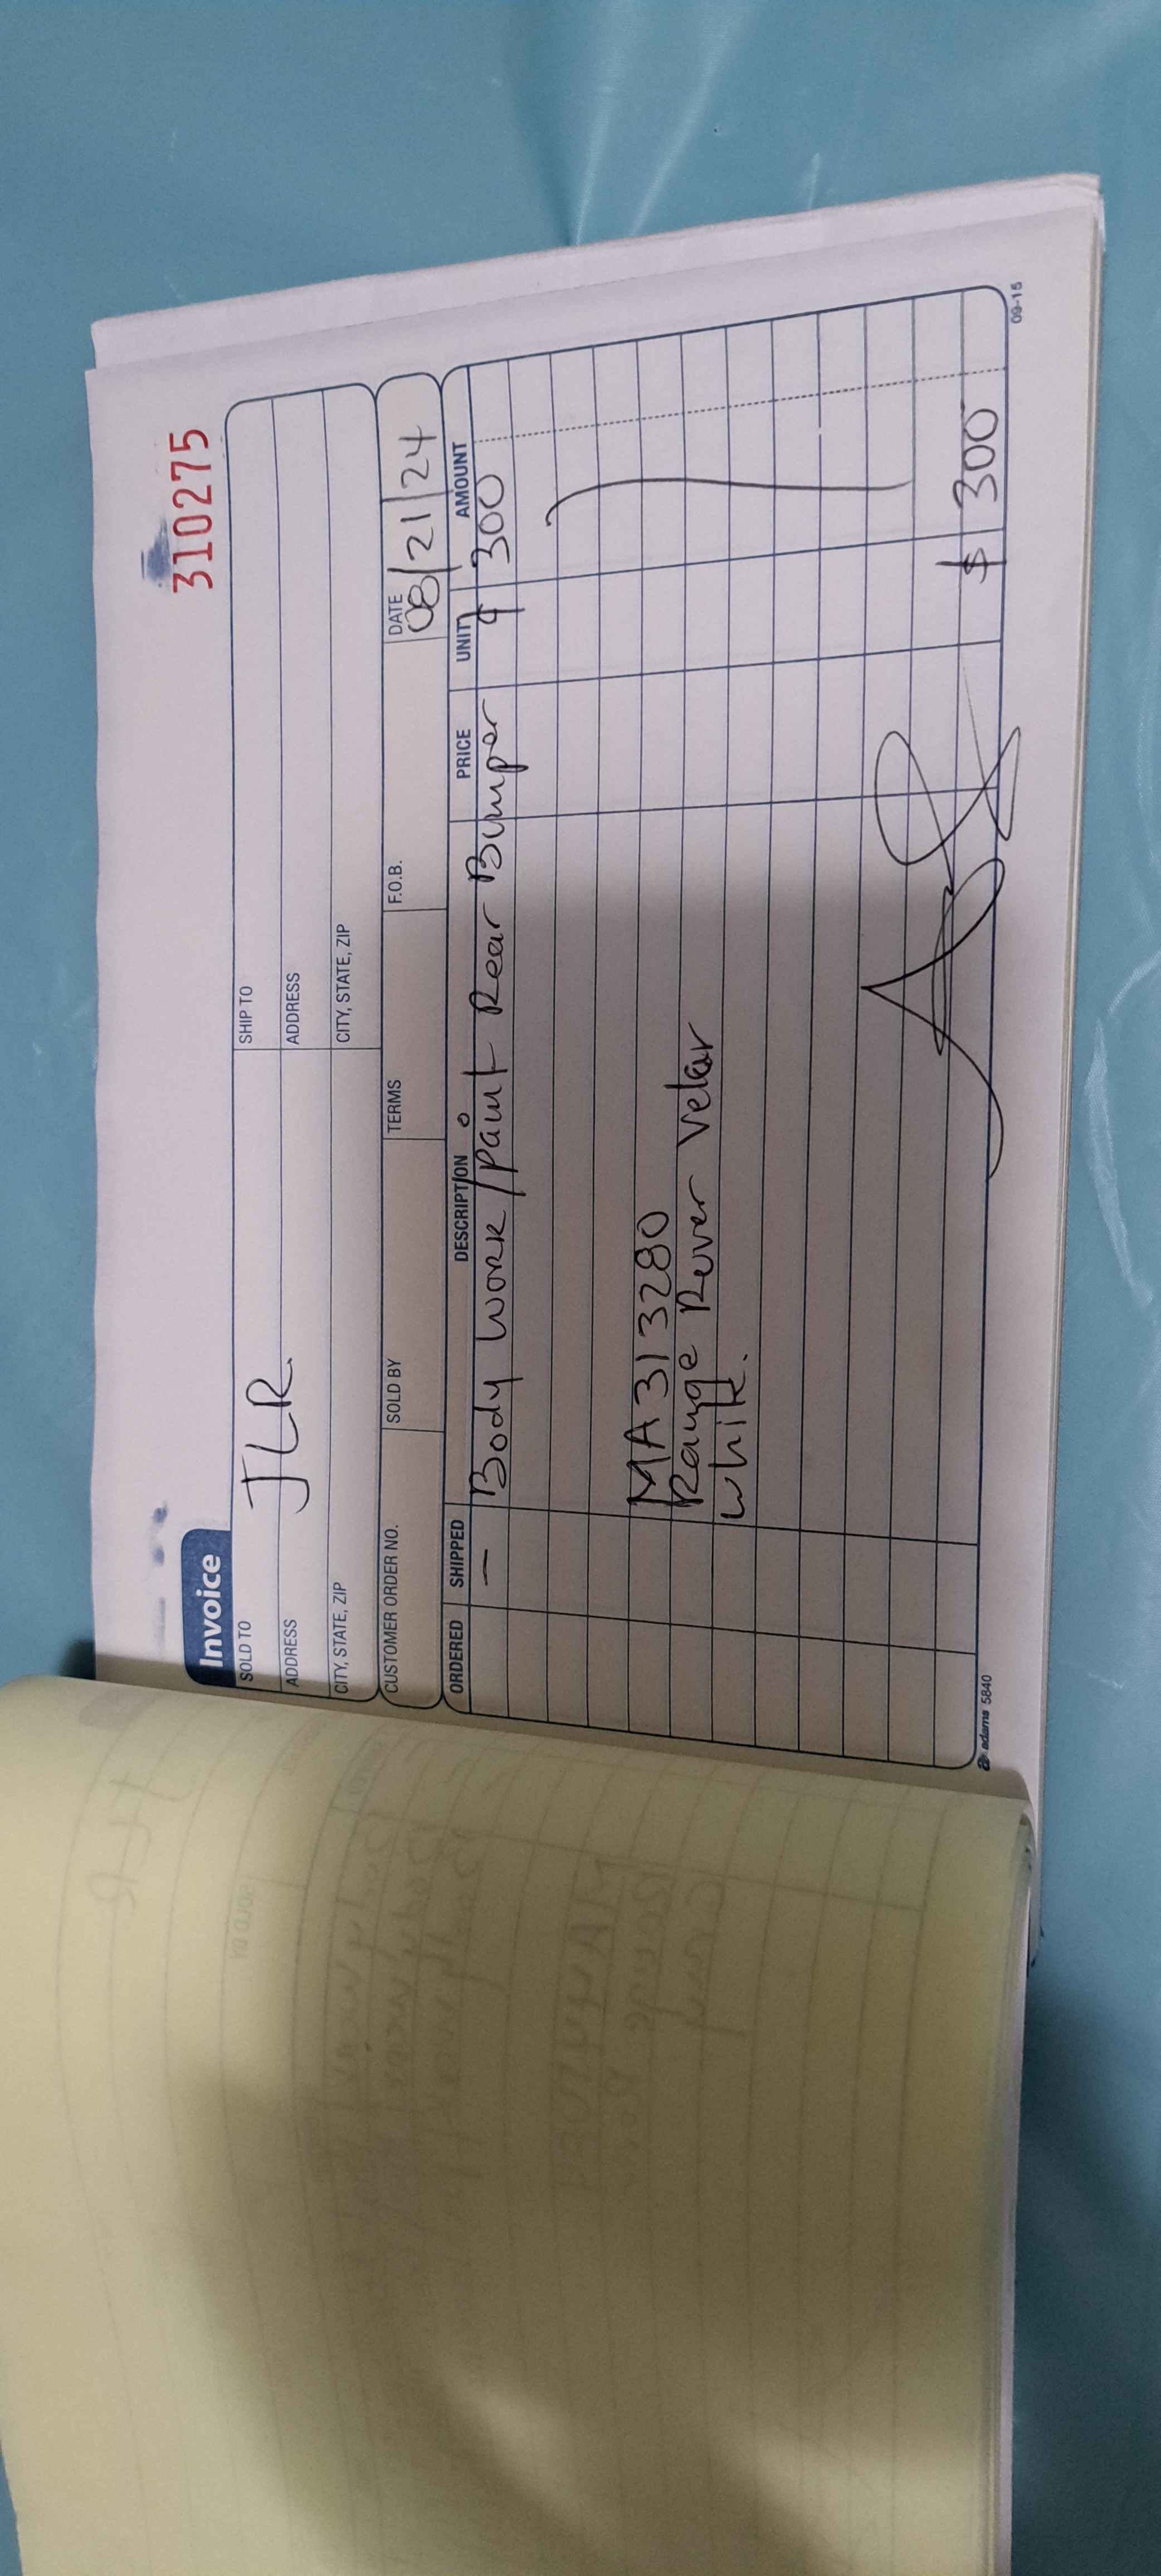 310275
Invoice
SOLD TO JLR. SHIP TO
ADDRESS ADDRESS
CITY, STATE, ZIP CITY, STATE, ZIP
CUSTOMER ORDER NO. SOLD BY TERMS F.O.B. DATE 08/21/24
ORDERED SHIPPED DESCRIPTION PRICE UNIT AMOUNT
— Body Work/paint Rear Bumper $ 300
MA313280
Range Rover Velar
white.
$ 300
adams 5840 09-15